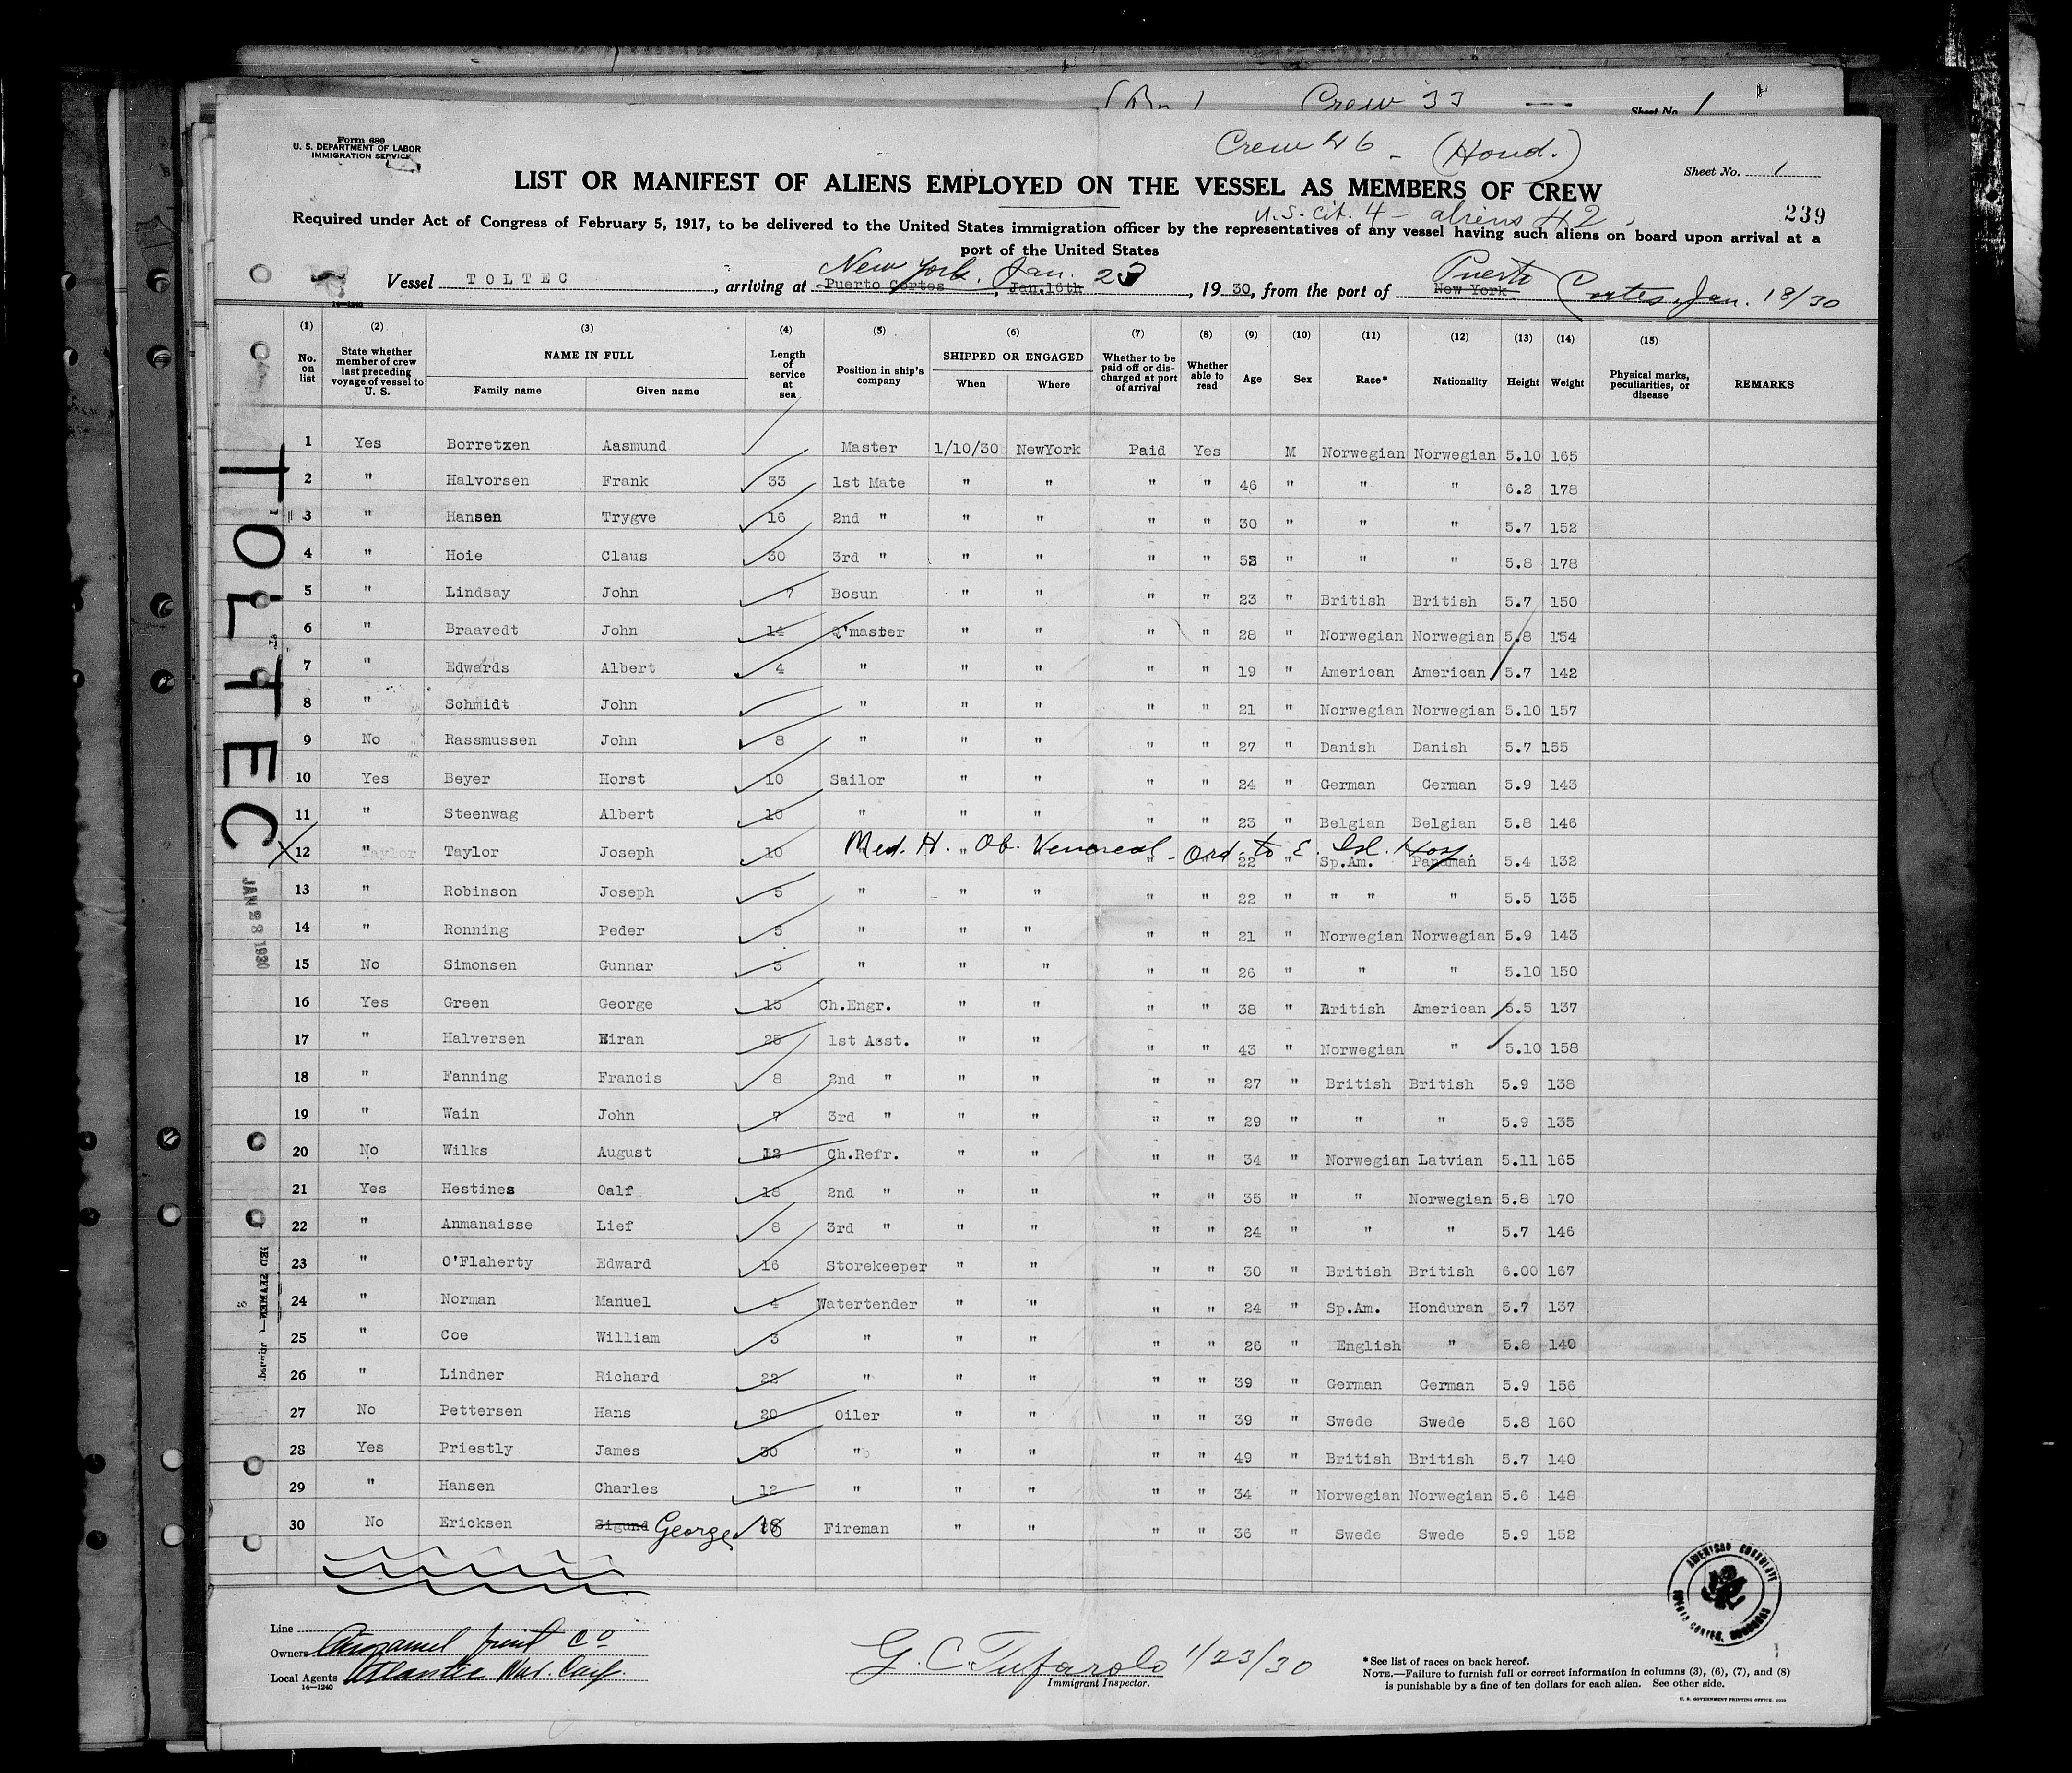 Crew 33
Sheet No. 1
Form 680
U. S. DEPARTMENT OF LABOR
IMMIGRATION SERVICE
Crew 46 - (Hond.)
Sheet No. 1
LIST OR MANIFEST OF ALIENS EMPLOYED ON THE VESSEL AS MEMBERS OF CREW
U.S. Cit. 4 - aliens 42
239
Required under Act of Congress of February 5, 1917, to be delivered to the United States immigration officer by the representatives of any vessel having such aliens on board upon arrival at a
port of the United States
New York, Jan. 23 Puerto Cortes, Jan. 18/30
Vessel TOLTEC, arriving at Puerto Cortes, Jan.16th, 1930, from the port of New York
14-1240
(1) (2) (3) (4) (5) (6) (7) (8) (9) (10) (11) (12) (13) (14) (15)
No. on list State whether member of crew last preceding voyage of vessel to U. S. NAME IN FULL Family name Given name Length of service at sea Position in ship's company SHIPPED OR ENGAGED When Where Whether to be paid off or discharged at port of arrival Whether able to read Age Sex Race* Nationality Height Weight Physical marks, peculiarities, or disease REMARKS
1 Yes Borretzen Aasmund Master 1/10/30 NewYork Paid Yes M Norwegian Norwegian 5.10 165
2 " Halvorsen Frank 33 1st Mate " " " " 46 " " " 6.2 178
3 " Hansen Trygve 16 2nd " " " " " 30 " " " 5.7 152
4 " Hoie Claus 30 3rd " " " " " 52 " " " 5.8 178
5 " Lindsay John 7 Bosun " " " " 23 " British British 5.7 150
6 " Braavedt John 14 Q'master " " " " 28 " Norwegian Norwegian 5.8 154
7 " Edwards Albert 4 " " " " " 19 " American American 5.7 142
8 " Schmidt John " " " " " 21 " Norwegian Norwegian 5.10 157
9 No Rassmussen John 8 " " " " " 27 " Danish Danish 5.7 155
10 Yes Beyer Horst 10 Sailor " " " " 24 " German German 5.9 143
11 " Steenwag Albert 10 " " " " " 23 " Belgian Belgian 5.8 146
Med. H. Ob. Venereal - Ord. to E. Isl. Hosp.
12 " Taylor Joseph 10 " " " " 22 " Sp.Am. Panaman 5.4 132
13 " Robinson Joseph 5 " " " " " 22 " " " " 5.5 135
14 " Ronning Peder 5 " " " " " 21 " Norwegian Norwegian 5.9 143
15 No Simonsen Gunnar 3 " " " " " 26 " " " 5.10 150
16 Yes Green George 15 Ch.Engr. " " " " 38 " British American 5.5 137
17 " Halversen Eiran 25 1st Asst. " " " " 43 " Norwegian " 5.10 158
18 " Fanning Francis 8 2nd " " " " " 27 " British British 5.9 138
19 " Wain John 7 3rd " " " " " 29 " " " 5.9 135
20 No Wilks August 12 Ch.Refr. " " " " 34 " Norwegian Latvian 5.11 165
21 Yes Hestines Oalf 18 2nd " " " " " 35 " " Norwegian 5.8 170
22 " Anmanaisse Lief 8 3rd " " " " " 24 " " " 5.7 146
23 " O'Flaherty Edward 16 Storekeeper " " " " 30 " British British 6.00 167
24 " Norman Manuel 4 Watertender " " " " 24 " Sp.Am. Honduran 5.7 137
25 " Coe William 3 " " " " " 26 " English " 5.8 140
26 " Lindner Richard 22 " " " " " 39 " German German 5.9 156
27 No Pettersen Hans 20 Oiler " " " " 39 " Swede Swede 5.8 160
28 Yes Priestly James 30 " " " " " 49 " British British 5.7 140
29 " Hansen Charles 12 " " " " " 34 " Norwegian Norwegian 5.6 148
30 No Ericksen Sigund George 18 Fireman " " " " 36 " Swede Swede 5.9 152
TOLTEC
JAN 23 1930
AMERICAN CONSULATE
PUERTO CORTES, HONDURAS
Line
Owners Cuyamel Fruit Co
Local Agents Atlantic Nav. Corp.
14-1240
G. C. Tufarolo 1/23/30
Immigrant Inspector.
*See list of races on back hereof.
NOTE.—Failure to furnish full or correct information in columns (3), (6), (7), and (8)
is punishable by a fine of ten dollars for each alien. See other side.
U. S. GOVERNMENT PRINTING OFFICE